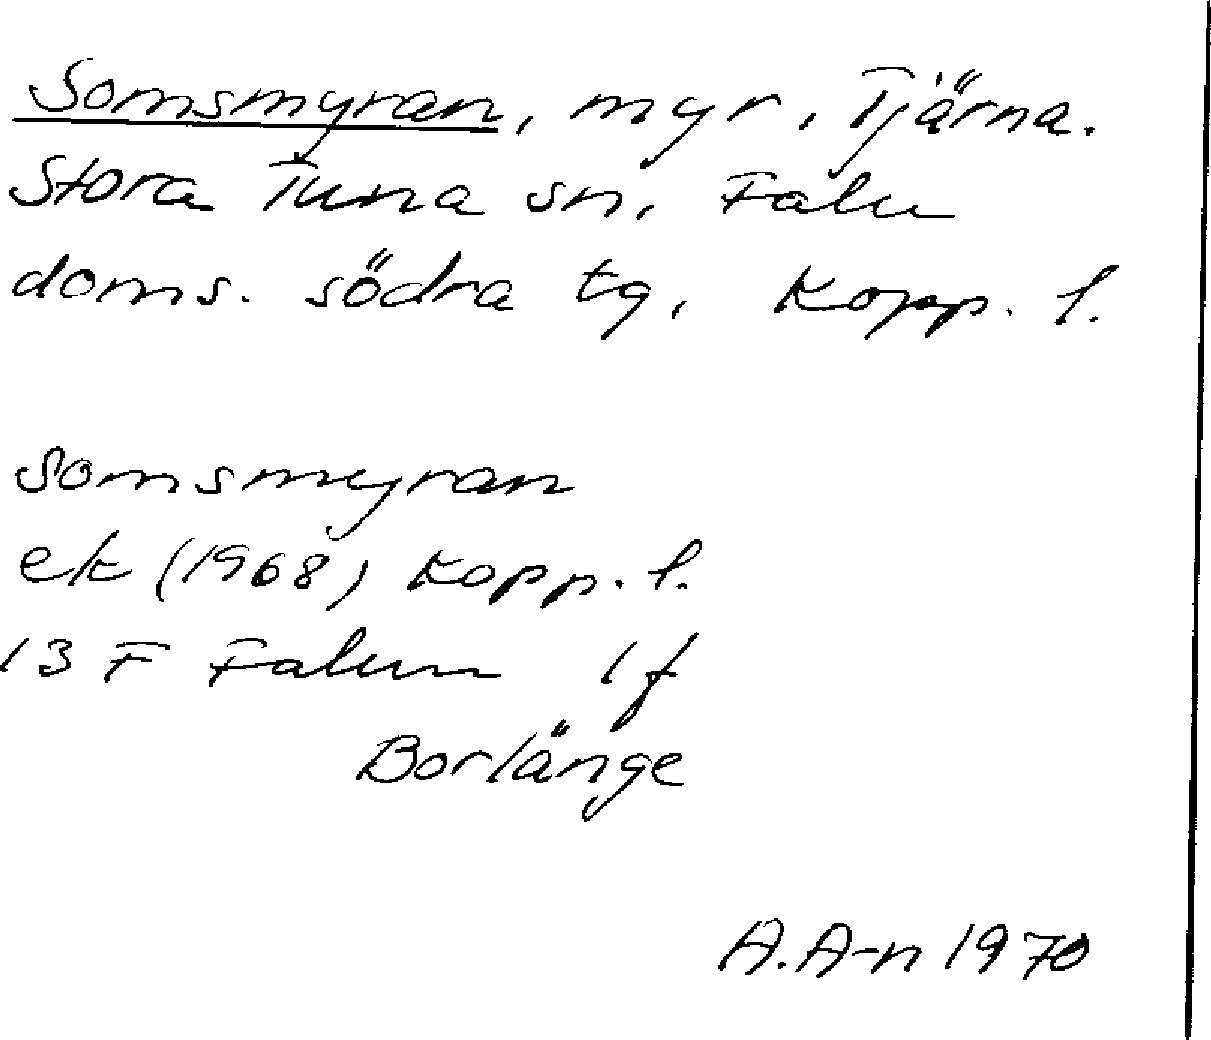 Somsmyran, myr, Tjärna.
Stora Tuna sn, Falu
doms. södra tg, Kopp. l.
Somsmyran
ek (1968) Kopp. l.
13 F Falun 1f
Borlänge
A.A-n 1970